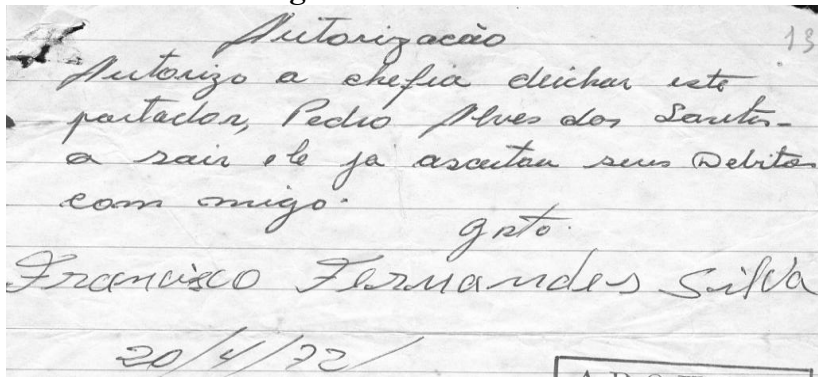 Autorizacão
13
Autorizo a chefia deichar este
portador, Pedro Alves dos Santos-
a sair ele ja asertou seus Debitos
com migo.
grto.
Francisco Fernandes Silva
20/4/72/